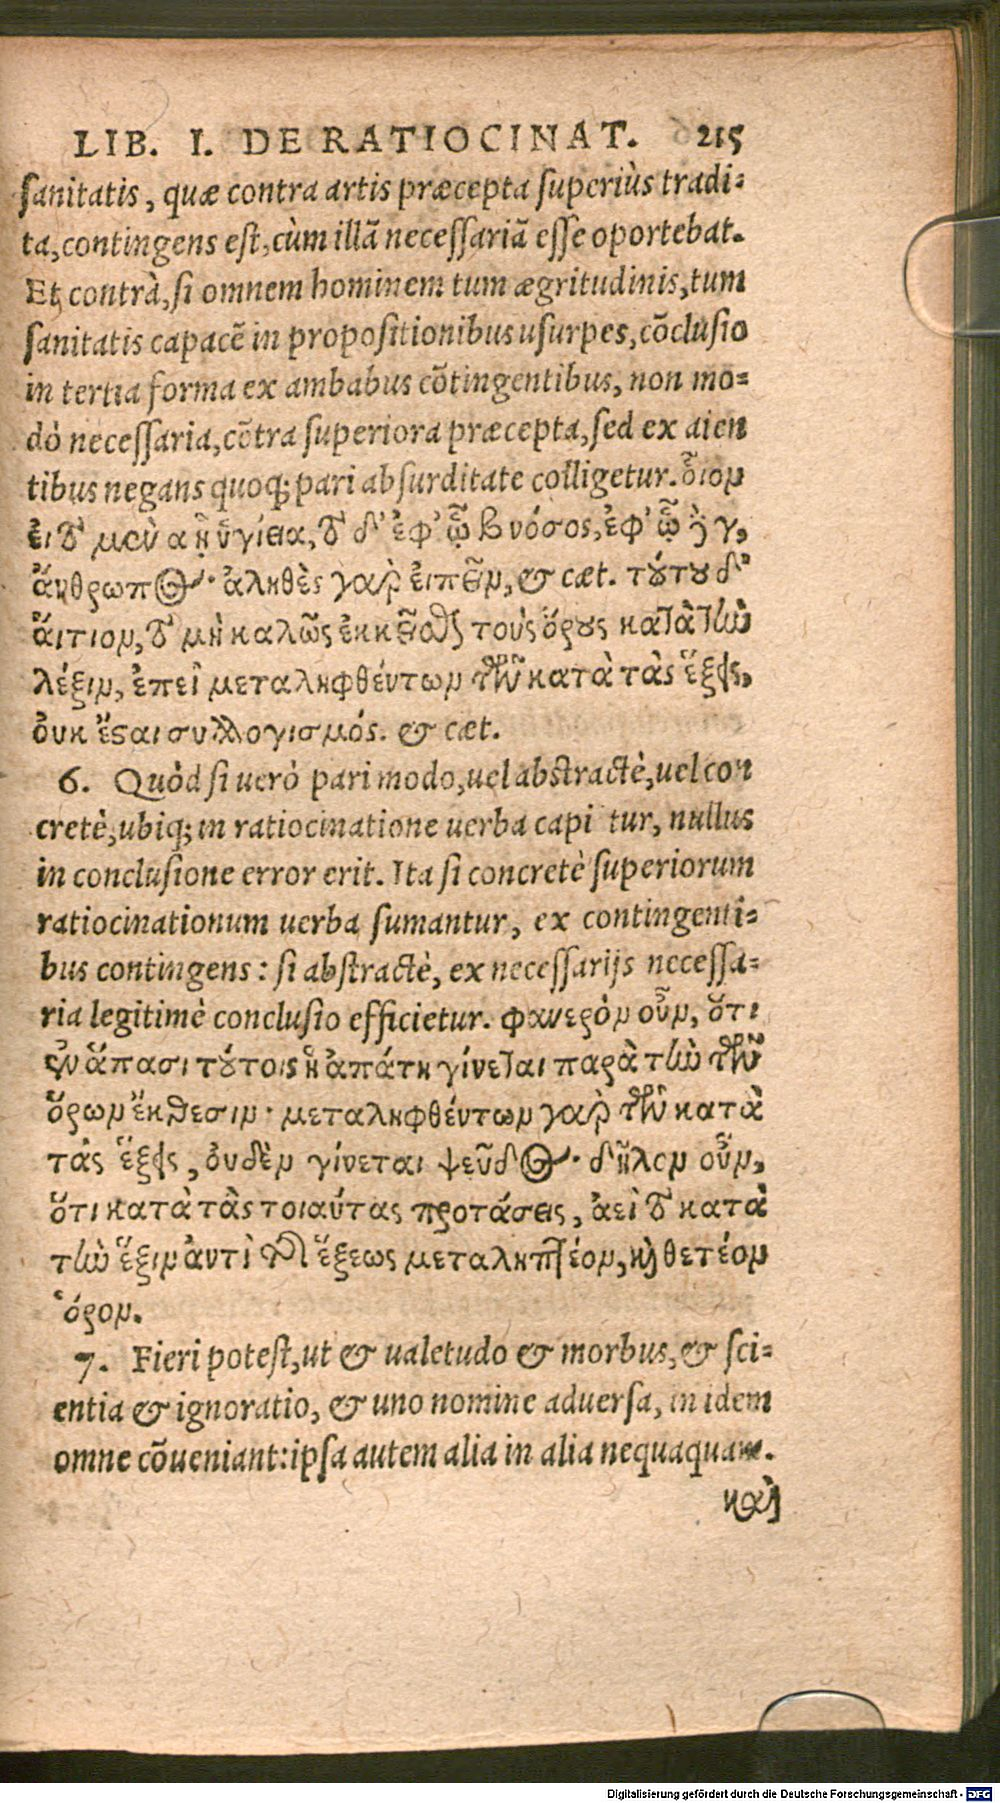 LIB. I. DE RATIOCINAT. 215
sanitatis, quæ contra artis præcepta superiùs tradi-
ta, contingens est, cùm illã necessariã esse oportebat.
Et contrà, si omnem hominem tum ægritudinis, tum
sanitatis capacẽ in propositionibus usurpes, cõclusio
in tertia forma ex ambabus cõtingentibus, non mo-
dò necessaria, cõtra superiora præcepta, sed ex aien
tibus negans quoq; pari absurditate colligetur. ὅιον
ἐι τὸ μὲν α ἢ ὑγίεια, τὸ δ' ἐφ' ᾧ β νόσος, ἐφ' ᾧ ἢ γ,
ἄνθρωπος· ἀληθὲς γὰρ ἐιπεῖν, & cæt. τούτου δ'
ἄιτιον, τὸ μὴ καλῶς ἐκκεῖσθαι τοὺς ὅρους κατὰ τὴν
λέξιν, ἐπεὶ μεταληφθέντων τῶν κατὰ τὰς ἕξεις,
ὀυκ ἔσαι συλλογισμός. & cæt.
6. Quòd si uerò pari modo, uel abstractè, uel con
cretè, ubiq; in ratiocinatione uerba capi tur, nullus
in conclusione error erit. Ita si concretè superiorum
ratiocinationum uerba sumantur, ex contingenti-
bus contingens: si abstractè, ex necessarijs necessa-
ria legitimè conclusio efficietur. φανερὸν οὖν, ὅτι
ἐν ἅπασι τούτοις ἡ ἀπάτη γίνεται παρὰ τὴν τῶν
ὅρων ἔκθεσιν· μεταληφθέντων γὰρ τῶν κατὰ
τὰς ἕξεις, ὀυδὲν γίνεται ψεῦδος· δῆλον οὖν,
ὅτι κατὰ τὰς τοιαύτας προτάσεις, ἀεὶ τὸ κατὰ
τὴν ἕξιν ἀντὶ τῆς ἕξεως μεταληπτέον, καὶ θετέον
ὅρον.
7. Fieri potest, ut & ualetudo & morbus, & sci-
entia & ignoratio, & uno nomine aduersa, in idem
omne cõueniant: ipsa autem alia in alia nequaquam.
καὶ
Digitalisierung gefördert durch die Deutsche Forschungsgemeinschaft - DFG